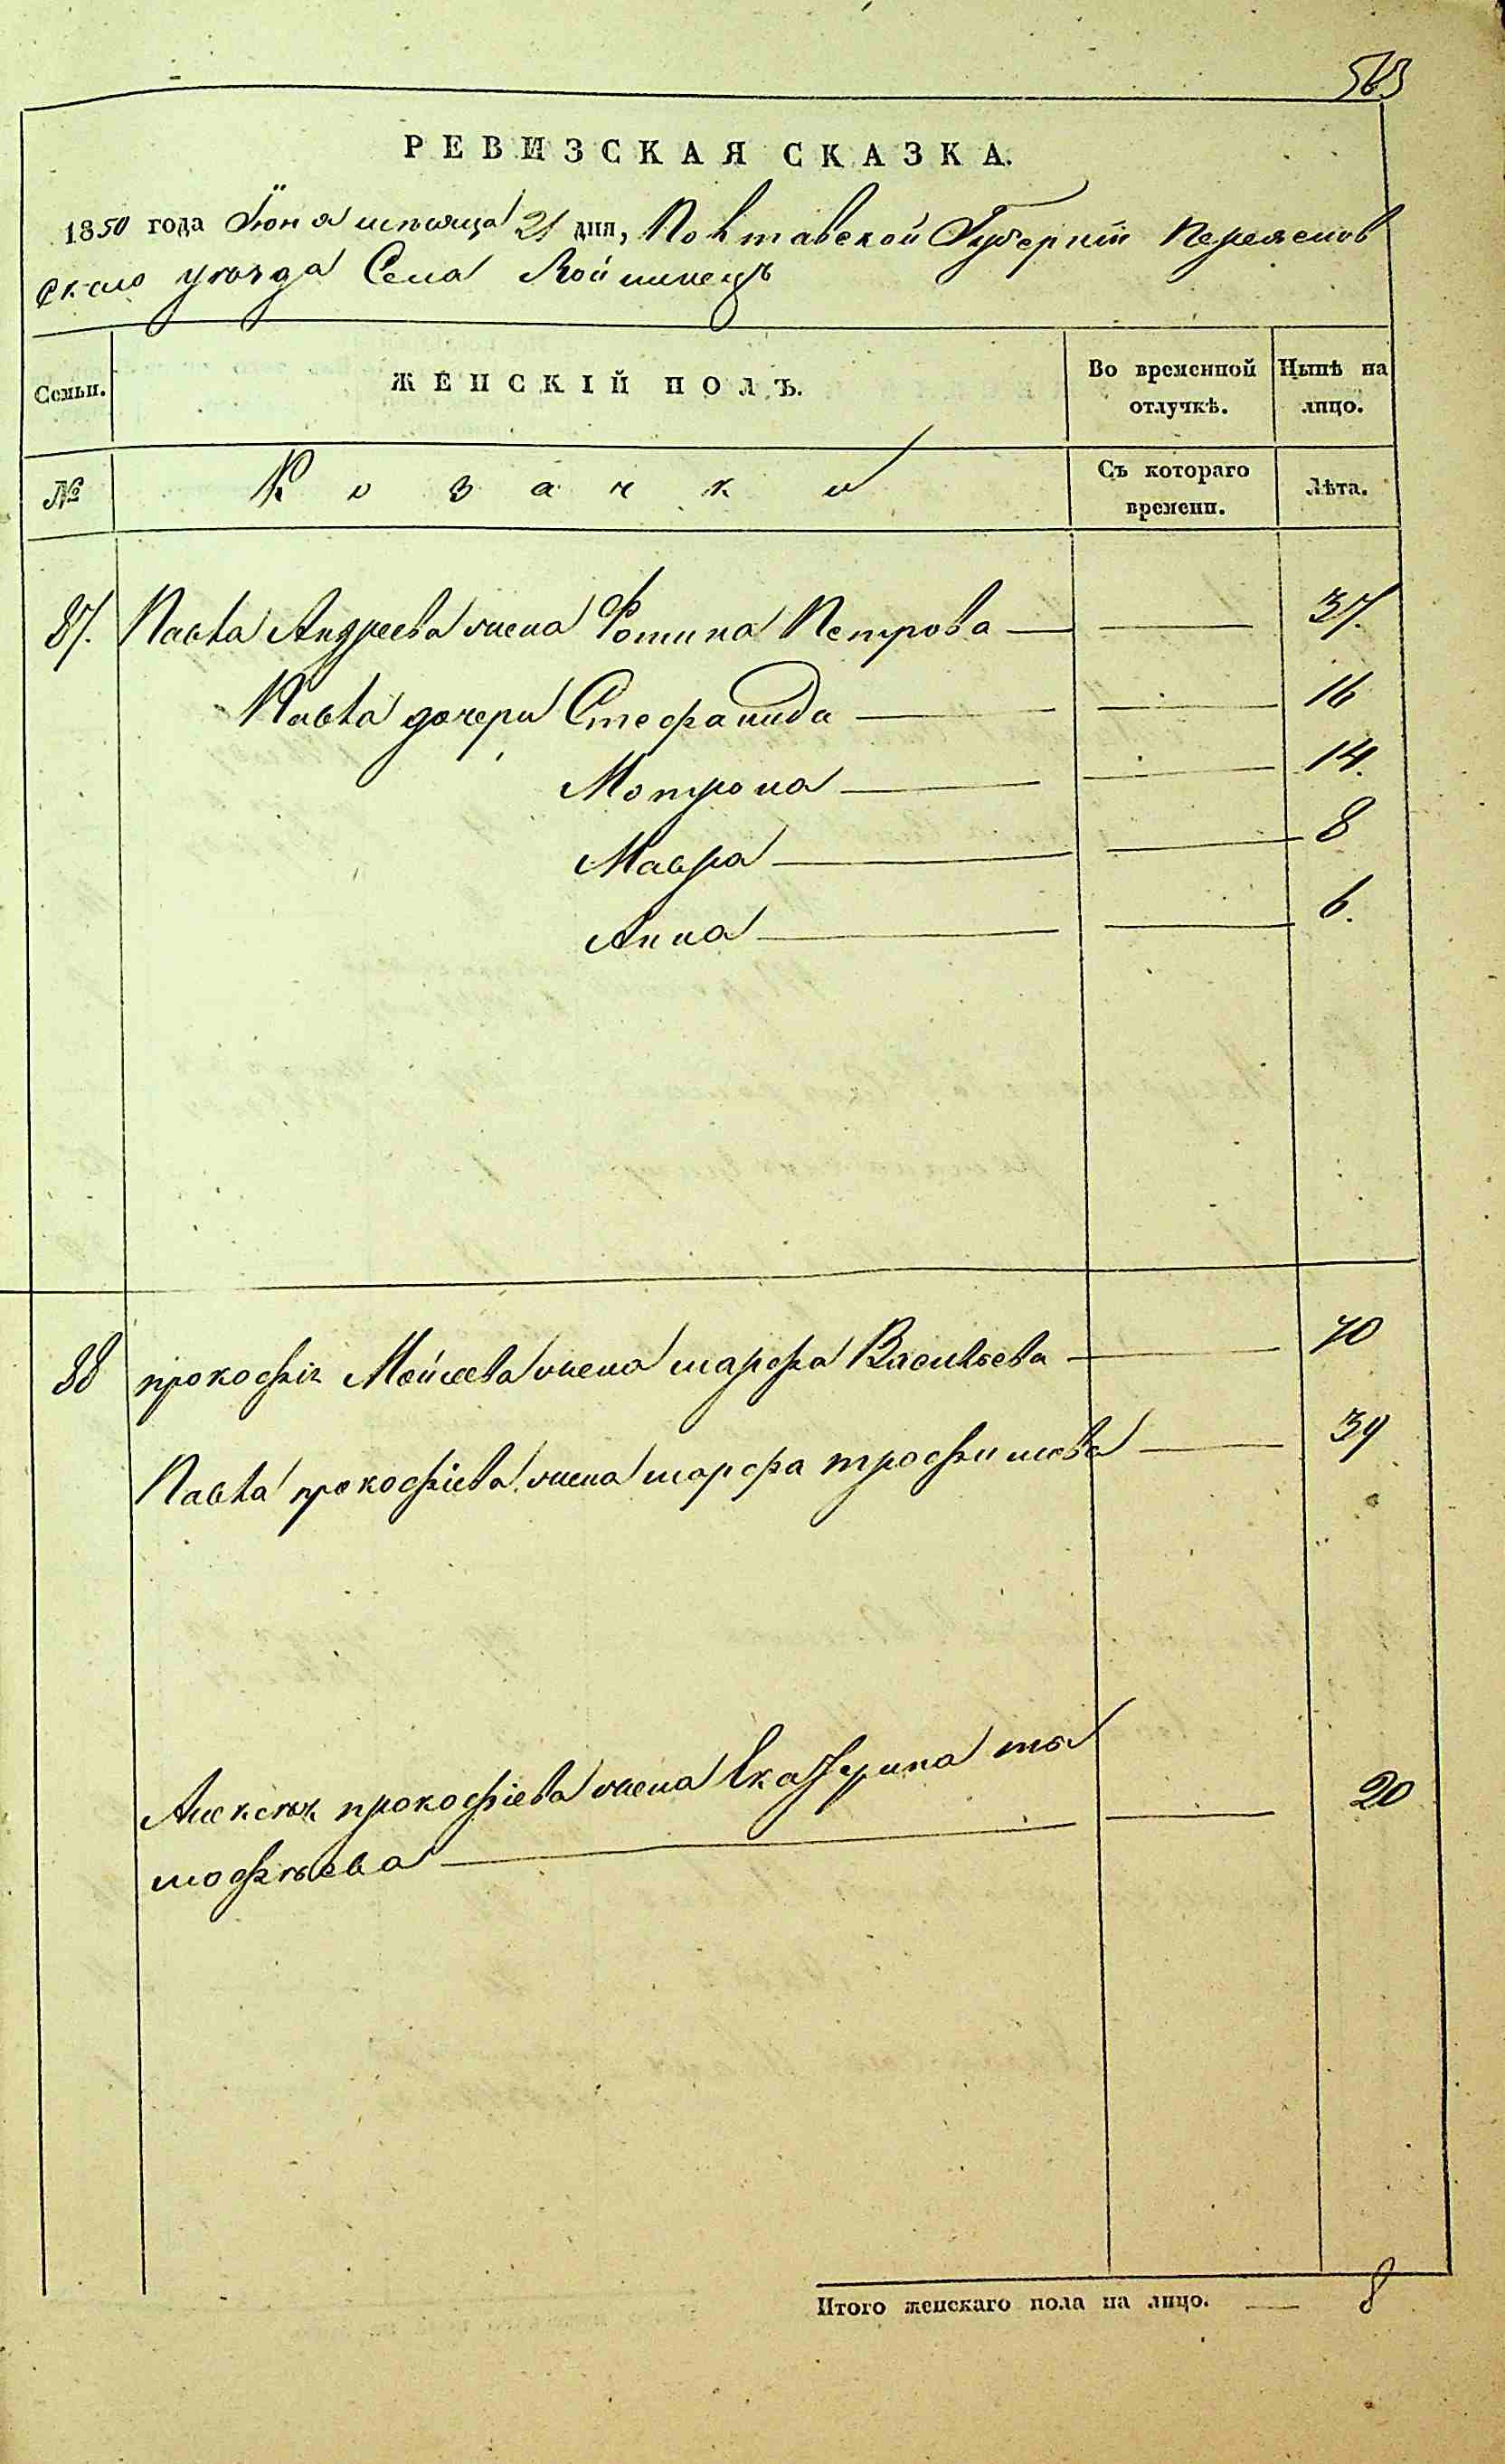 563
РЕВИЗСКАЯ СКАЗКА.
1850 года Іюня мѣсяца 21 дня, Полтавской Губерніи Переяслов
скаго уѣзда Села Войтовецъ
Семьи. ЖЕНСКІЙ ПОЛЪ. Во временной отлучкѣ. Нынѣ на лицо.
№ Козачки Съ котораго времени. Лѣта.
87. Павла Андреева жена Фотина Петрова — — 37.
Павла дочери Стефанида — — 16
Мотрона — — 14.
Мавра — — 8
Анна — — 6.
88 прокофія Мойсеева жена марфа Васильева — 70
Павла прокофіева жена марфа трофимова — 39
Алексѣя прокофіева жена Екатерина ти
мофѣева — — 20
Итого женскаго пола на лицо. — 8